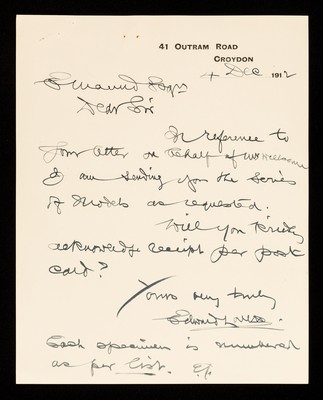 41 OUTRAM ROAD
CROYDON
4 Dec 1912
Dear Sir
In reference to
your letter on behalf of Mr Wellcome
I am sending you the series
of models as requested.
Will you kindly
acknowledge receipt per post
card?
Yours very truly
Edward
Each specimen is numbered
as per list.